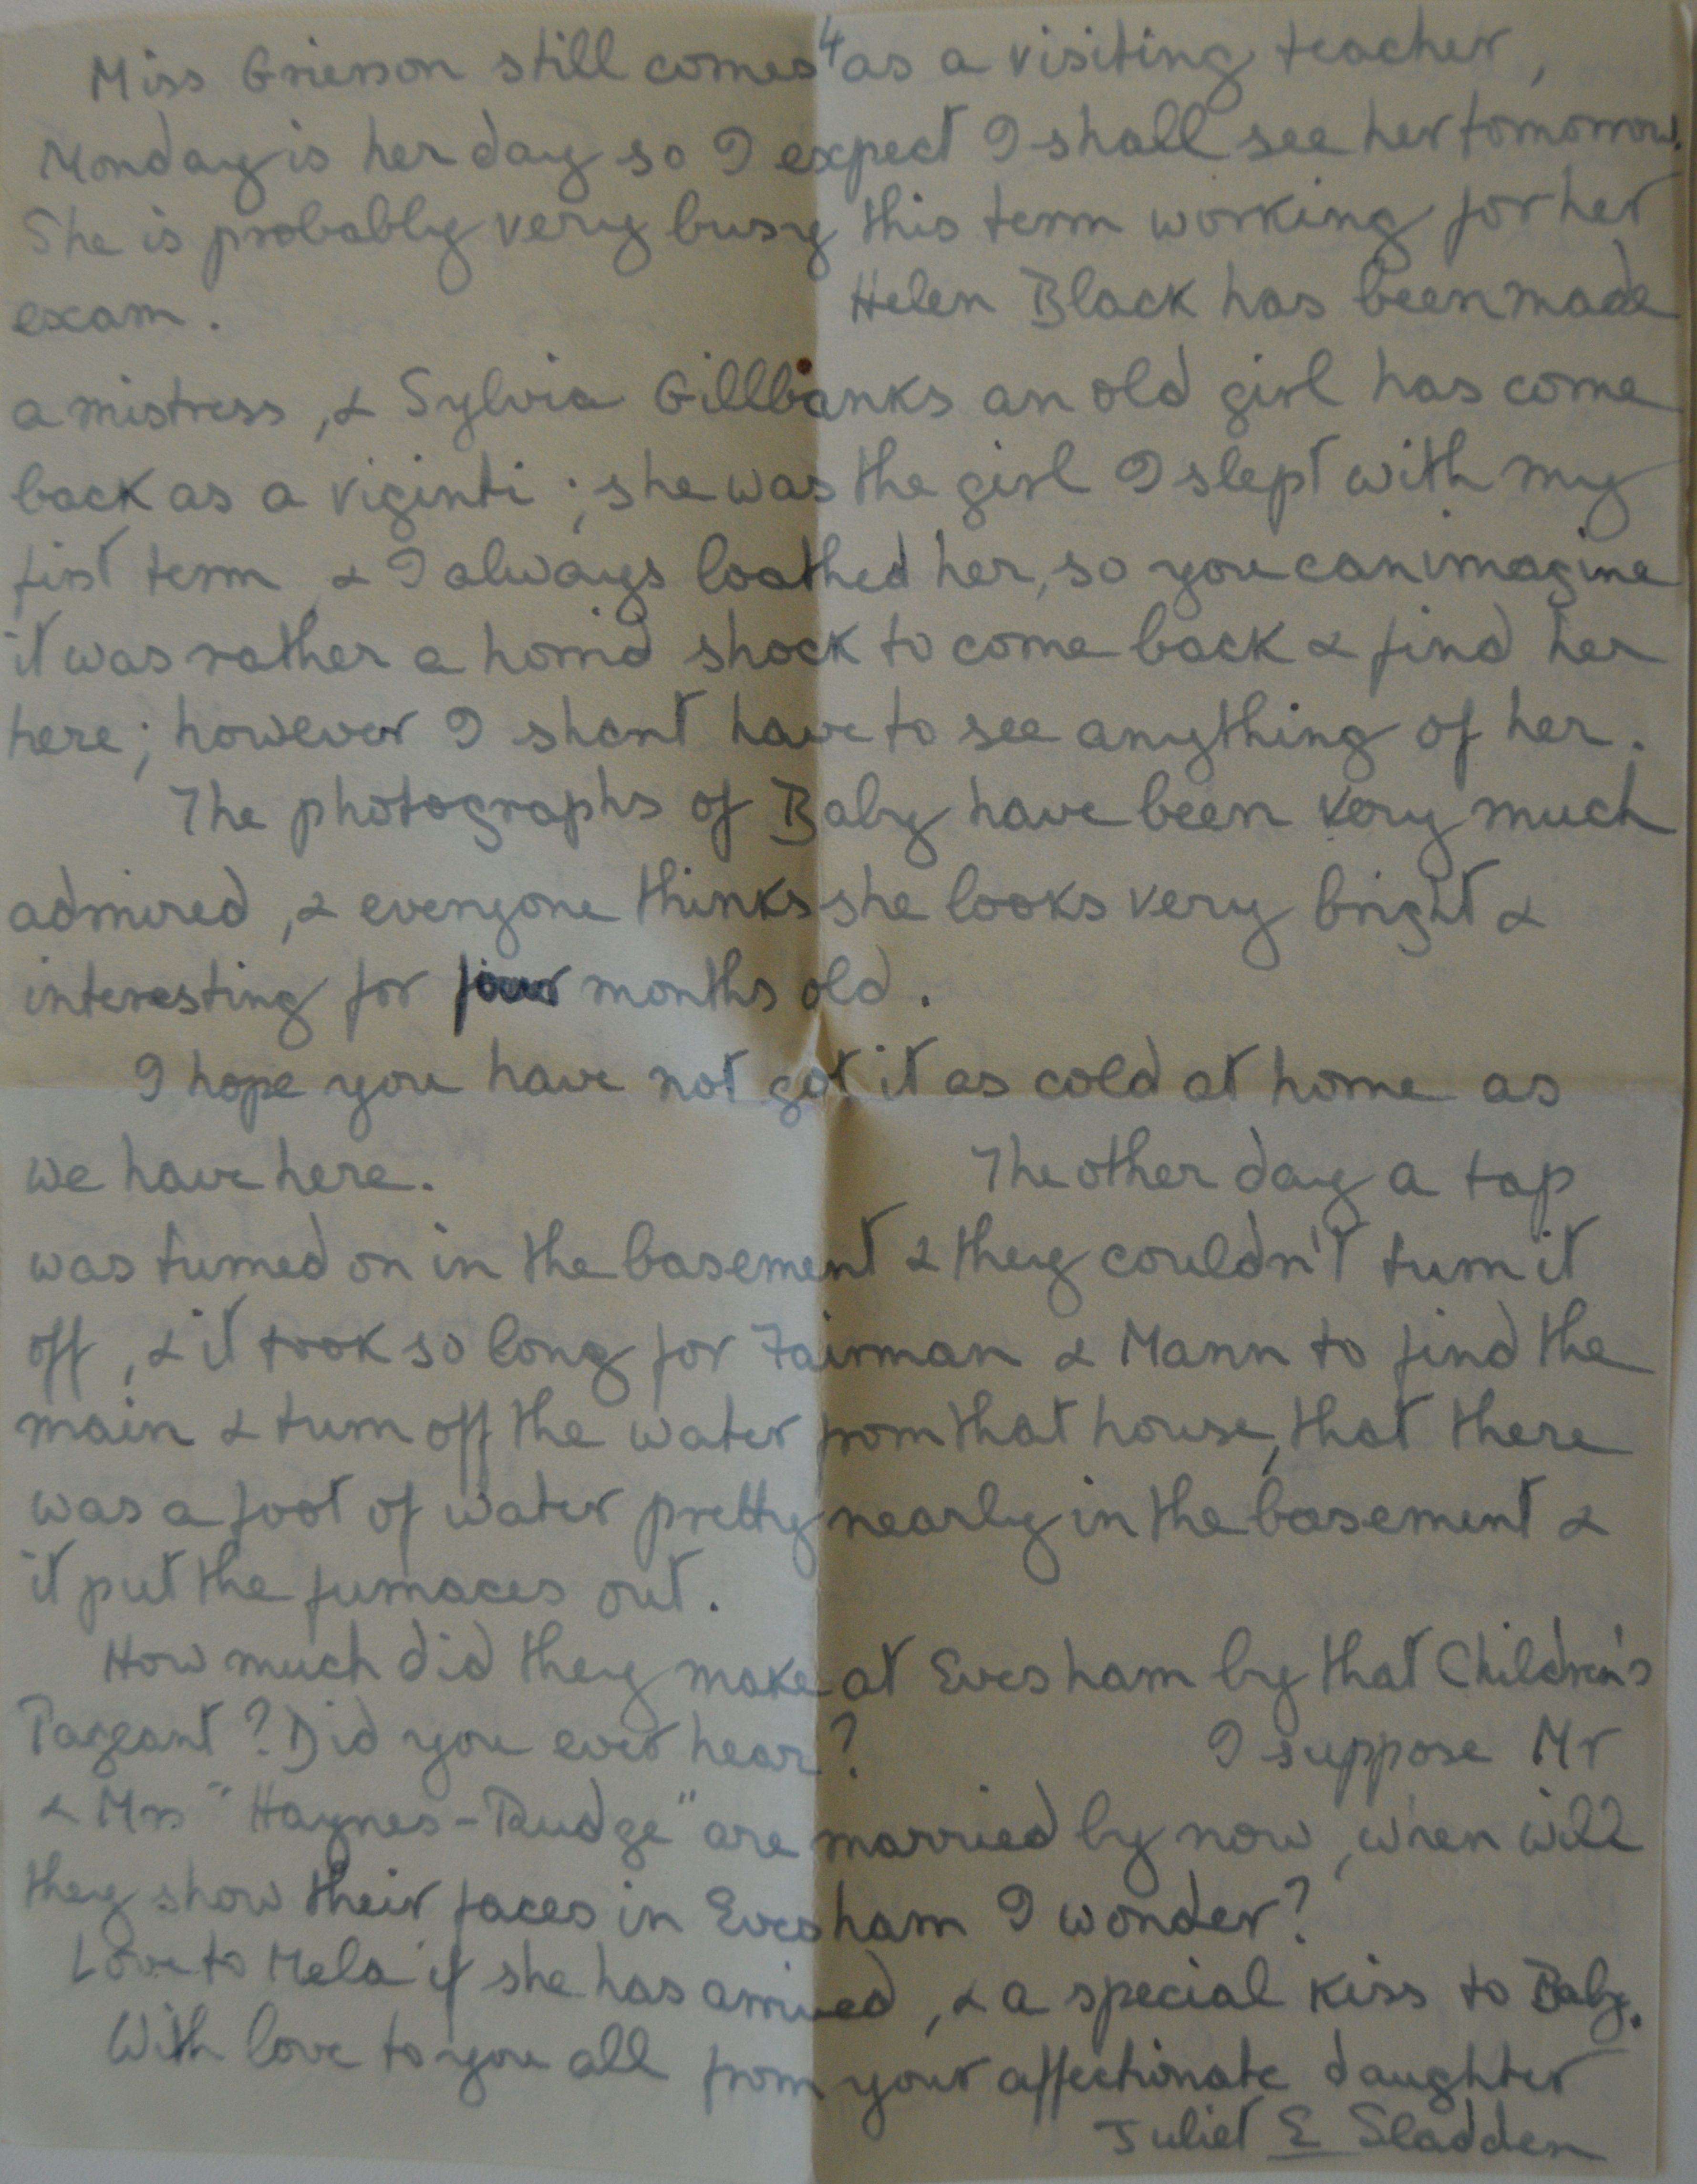 4
Miss Grierson still comes as a visiting teacher,
Monday is her day so I expect I shall see her tomorrow.
She is probably very busy this term working for her
exam. Helen Black has been made
a mistress, & Sylvia Gillbanks an old girl has come
back as a viginti; she was the girl I slept with my
first term & I always loathed her, so you can imagine
it was rather a horrid shock to come back & find her
here; however I shant have to see anything of her.
The photographs of Baby have been very much
admired, & everyone thinks she looks very bright &
interesting for four months old.
I hope you have not got it as cold at home as
we have here. The other day a tap
was turned on in the basement & they couldn't turn it
off, & it took so long for Fairman & Mann to find the
main & turn off the water from that house, that there
was a foot of water pretty nearly in the basement &
it put the furnaces out.
How much did they make at Evesham by that Children's
Pageant? Did you ever hear? I suppose Mr
& Mrs "Haynes-Rudge" are married by now, when will
they show their faces in Evesham I wonder?
Love to Mela if she has arrived, & a special kiss to Baby.
With love to you all from your affectionate daughter
Juliet E Sladden